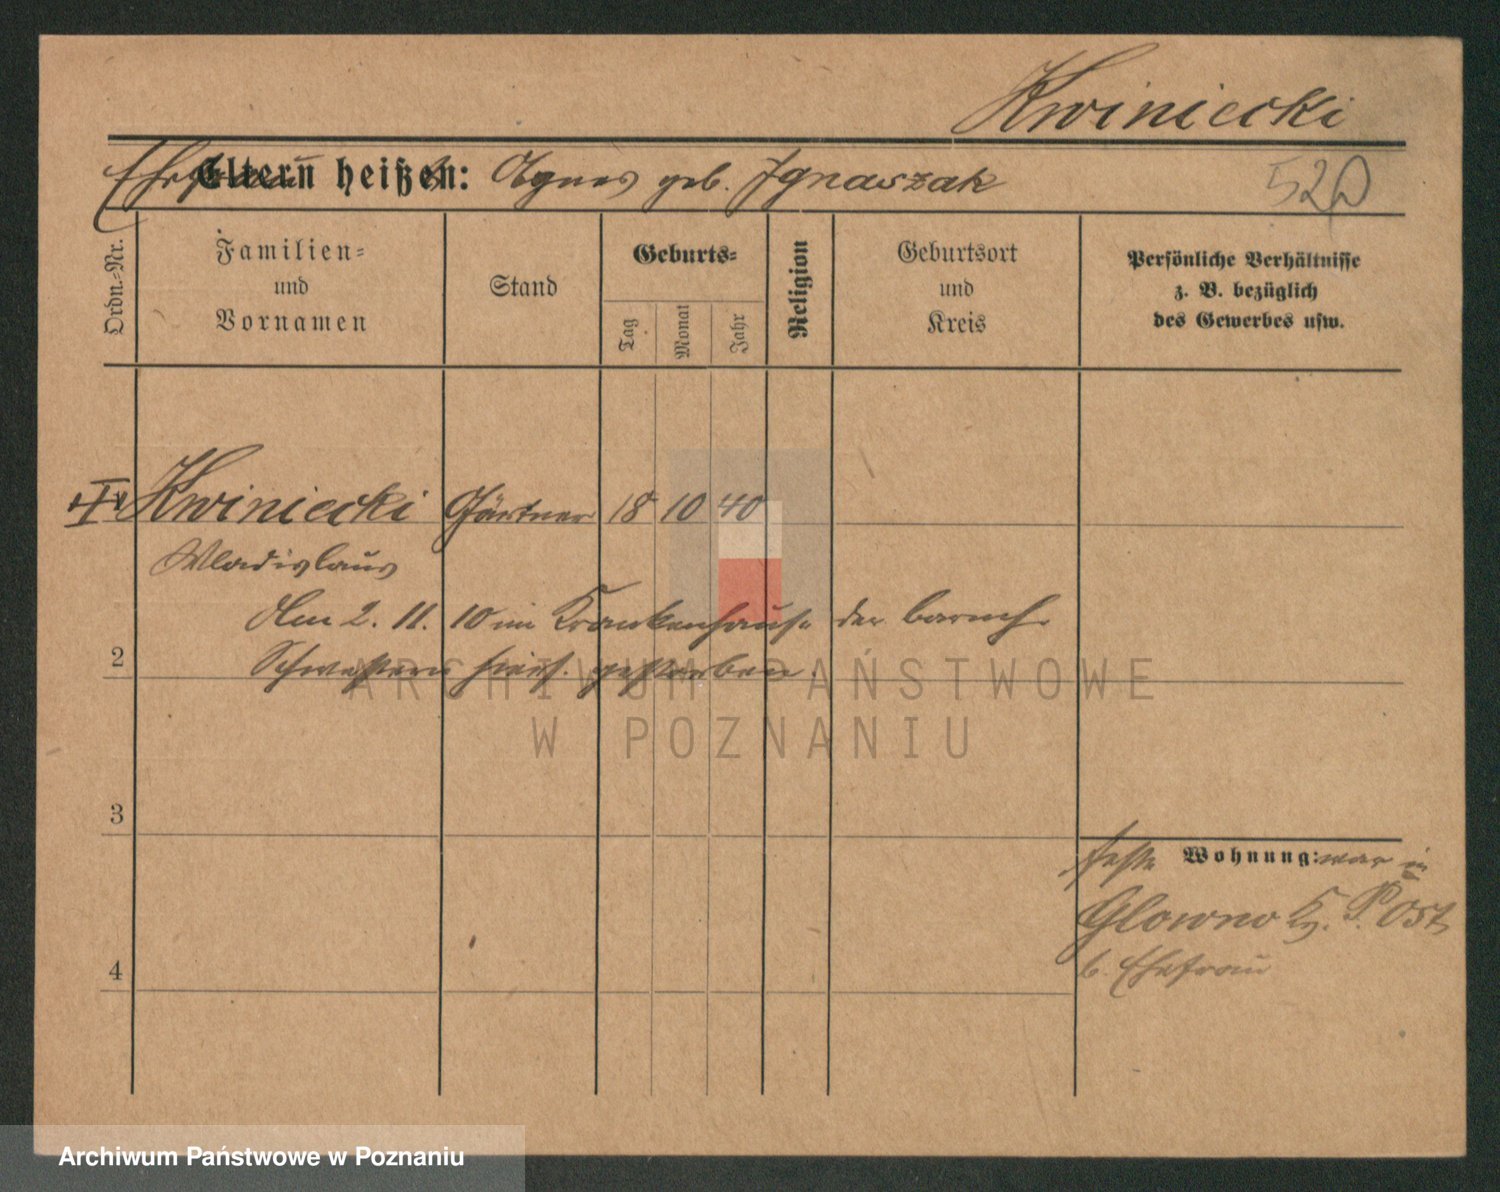 Kwiniecki
Ehefrau
Eltern heißen: Agnes geb. Ignaszak
520
Ordn.-Nr.
Familien-
und
Vornamen
Stand
Geburts-
Tag
Monat
Jahr
Religion
Geburtsort
und
Kreis
Persönliche Verhältnisse
z. B. bezüglich
des Gewerbes usw.
Kwiniecki Gärtner 18 10 40
Wladislaus
Am 2. 11. 10 im Krankenhause der barmh.
2 Schwestern hies. gestorben
ARCHIWUM PAŃSTWOWE
W POZNANIU
3
feste Wohnung: war in
Glowno Kr. P. Ost
b. Ehefrau
4
Archiwum Państwowe w Poznaniu